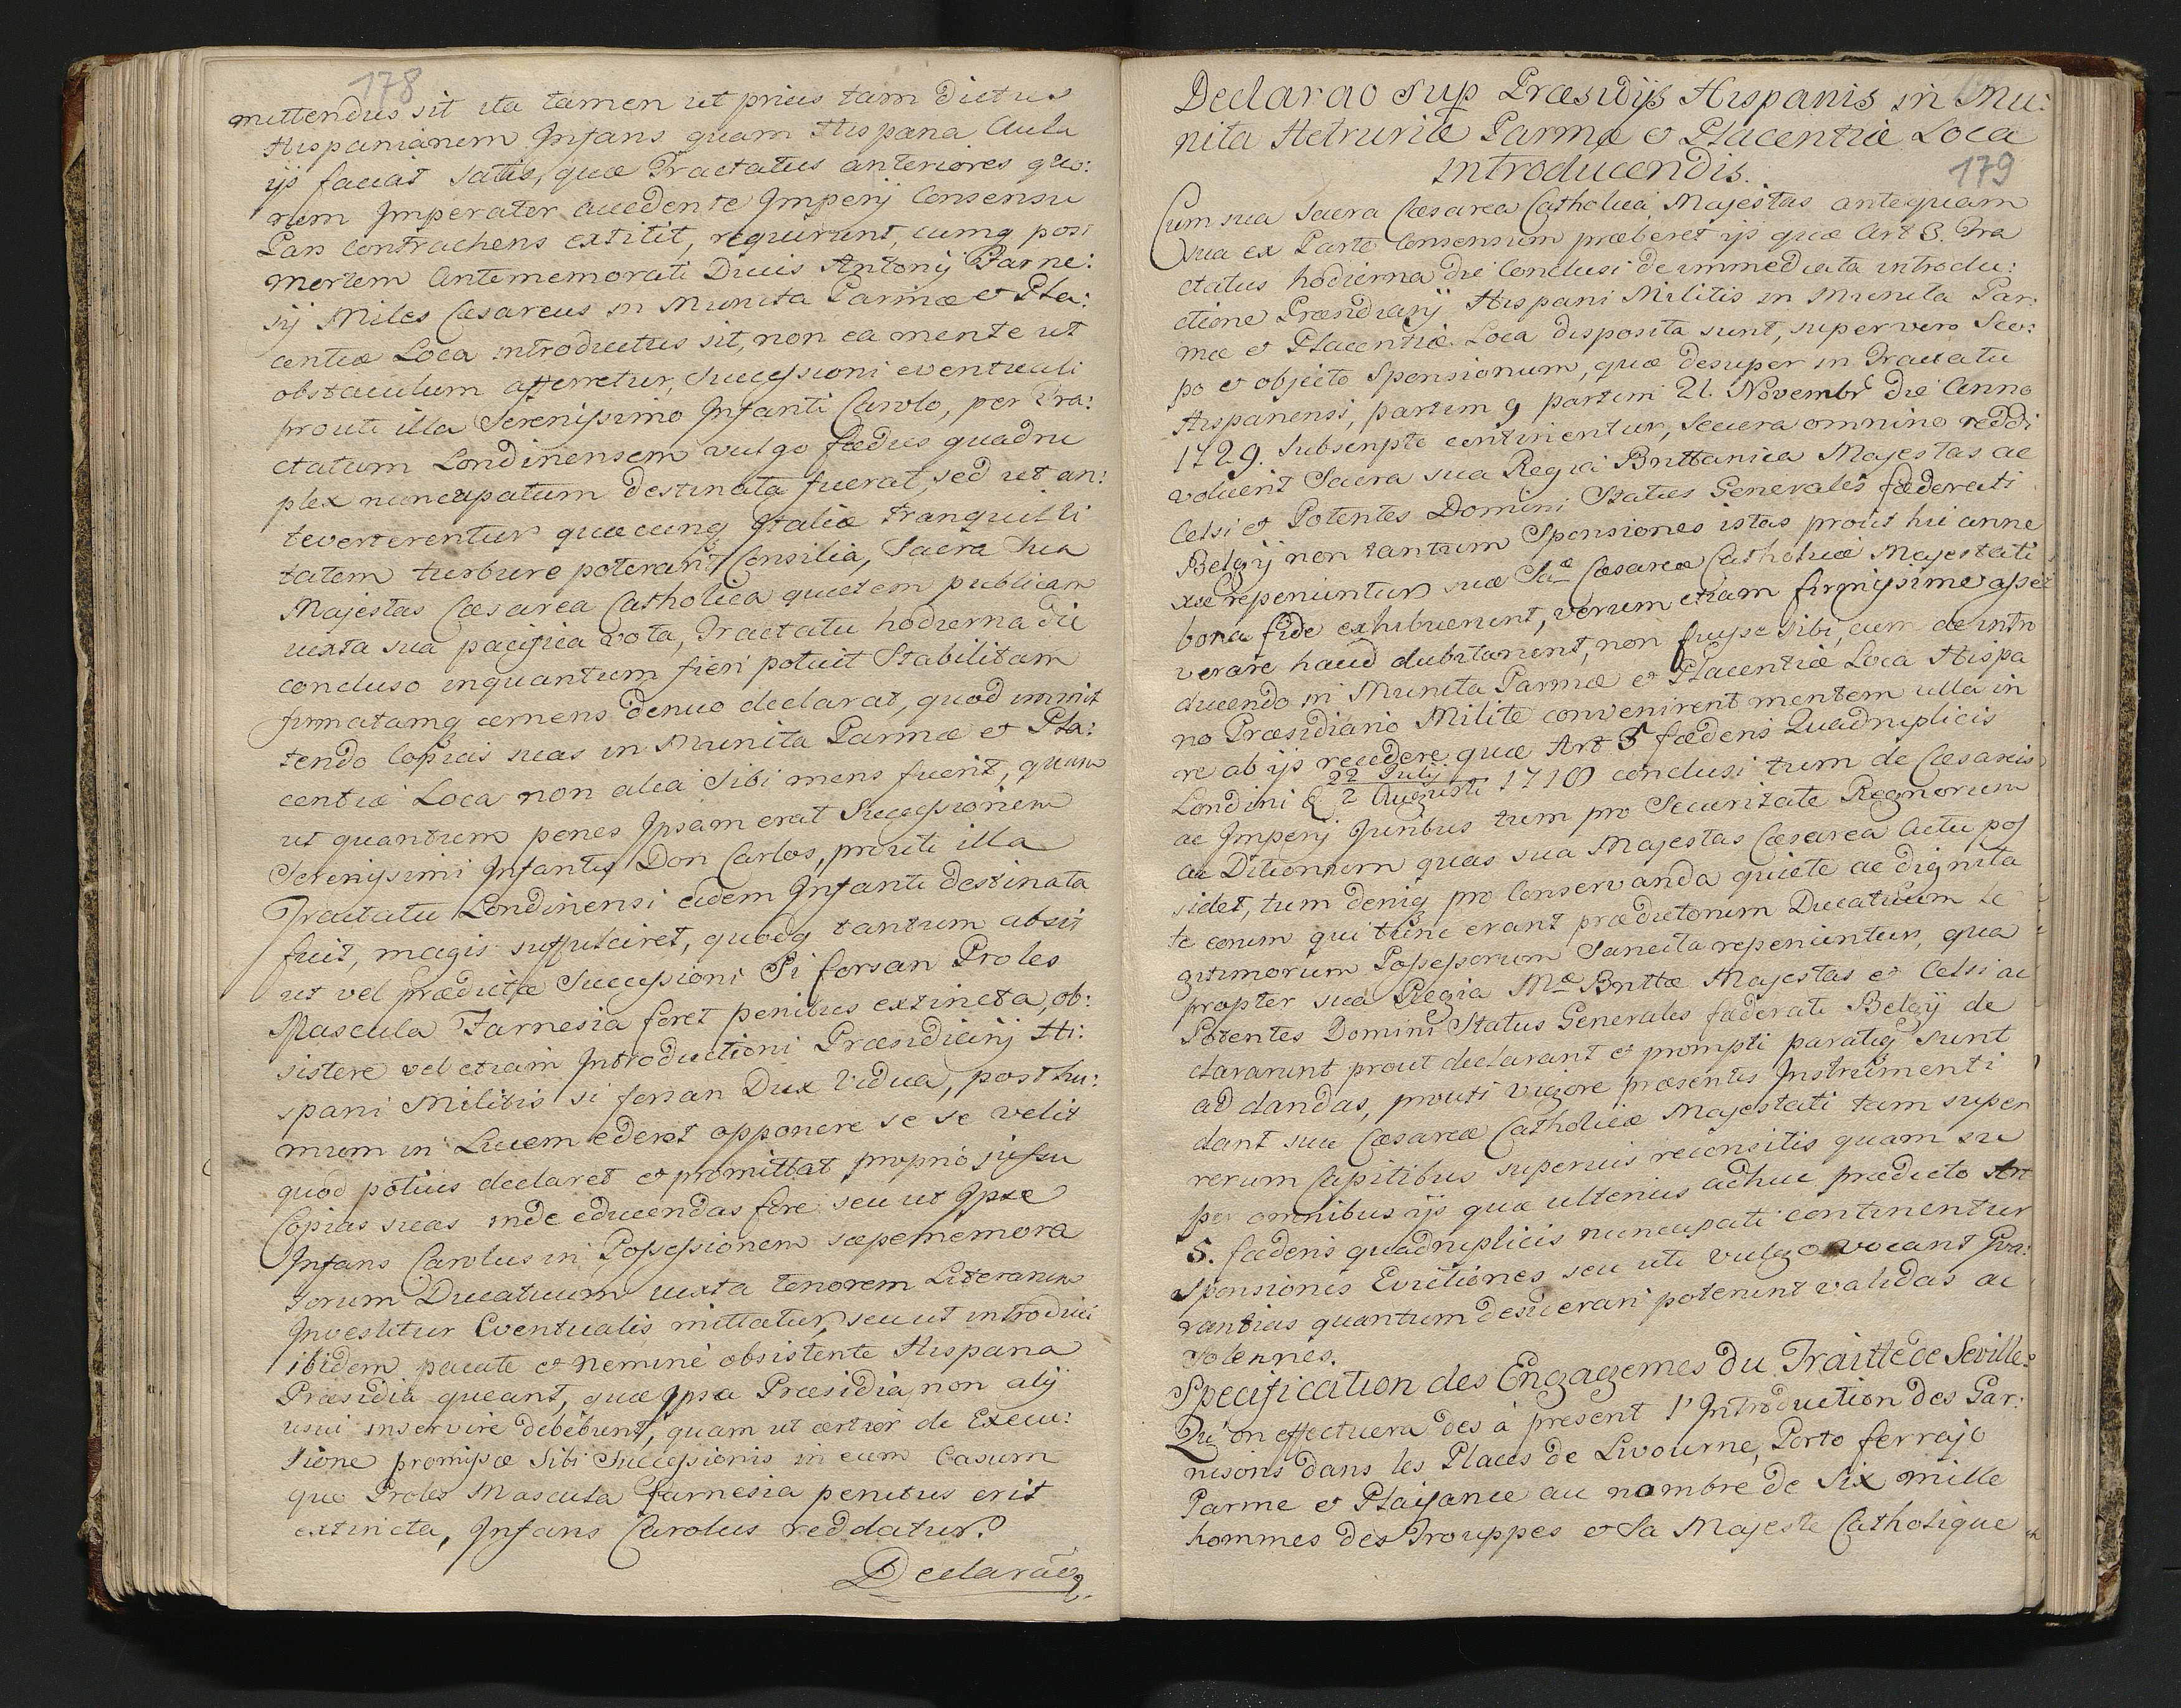 178
mittendus sit ita tamen ut prius tam dictus
Hispaniarum Infans quam Hispana Aula
ijs faciat satis, quæ Tractatus anteriores quo:
rum Imperator accedente Imperij Consensu
Pars contrachens extitit, requirunt, cumq post
mortem Antememorati Ducis Antonij Farne:
sij Miles Cæsareus in Munita Parmæ et Pla:
centiæ Loca introductus sit, non ea mente ut
obstaculum afferretur, successioni eventuali
prouti illa Serenissimo Infanti Carolo, per Tra:
ctatum Londinensem vulgo fœdus quadru
plex nuncupatum destinata fuerat, sed ut an:
teverterentur quæcunq Italiæ tranquilli
tatem turbare poterant Consilia, Sacra Sua
Majestas Cæsarea Catholica quietem publicam
iuxta sua pacifica vota, Tractatu hodierna die
concluso inquantum fieri potuit Stabilitam
firmatamq cernens denuo declarat, quod immit
tendo Copias suas in Munita Parmæ et Pla:
centiæ Loca non alia Sibi mens fuerit, quam
ut quantum penes Ipsam erat Successionem
Serenissimi Infantis Don Carlos, prouti illa
Tractatu Londinensi eidem Infanti destinata
fuit, magis suffulciret, quodq tantum absit
ut vel prædictæ Successioni Si forsan Proles
Mascula Farnesia foret penitus extincta, ob:
sistere vel etiam Introductioni Præsidiarij Hi:
spani Militis si forsan Dux Vidua, posthu:
mum in Lucem ederet opponere se se velit
quod potius declaret et promittat proprio jussu
Copias suas inde educendas fore seu ut Ipse
Infans Carolus in Possessionem sæpememora
torum Ducatuum iuxta tenorem Literarum
Investitur Eventualis mittatur, seu ut introduci
ibidem pacate et nemine obsistente Hispana
Præsidia queant, quæ Ipsa Præsidia non alij
usui inservire debebunt, quam ut certior de Execu:
tione promissæ Sibi Successionis in eum Casum
quo Proles Mascula farnesia penitus erit
extincta, Infans Carolus reddatur.
Declarãõ
Declarao sup Præsidijs Hispanis in Mu:
nita Hetruriæ Parmæ et Placentiæ Loca
introducendis.
179
Cum sua Sacra Cæsarea Catholica Majestas antequam
sua ex Parte Consensum præberet ijs quæ Art 3. Tra
ctatus hodierna die Conclusi de immediata introdu:
ctione Præsidiarij Hispani Militis in Munita Par:
mæ et Placentiæ Loca disposita sunt, super vero Sco:
po et objecto Sponsionum, quæ desuper in Tractatu
Hispanensi, partim 9 partim 21 Novembr die Anno
1729. Subscripto continentur, Secura omnino reddi
voluerit Sacra sua Regia Brittanica Majestas ac
Celsi et Potentes Domini Status Generales fœderati
Belgij non tantum Sponsiones istas prout hic anne
xæ reperiuntur suæ Sæ Cæsareæ Catholicæ Majestati
bona fide exhibuerunt, verum etiam firmissime asse
verare haud dubitarunt, non fuisse Sibi, cum de intro
ducendo in Munita Parmæ et Placentiæ Loca Hispa
no Præsidiario Milite convenirent mentem ulla in
re ab ijs recedere quæ Art 5 fœderis Quadruplicis
Londini d 22 July / 2 Augusti 1718 conclusi tum de Cæsareis
ac Imperij Juribus tum pro Securitate Regnorum
ac Ditionum quas sua Majestas Cæsarea Actu pos
sidet, tum deniq pro Conservanda quiete ac dignita
te eorum qui tunc erant prædictorum Ducatuum Le
gitimorum Possessorum Sancita reperiuntur, qua
propter sua Regia Mæ Brittæ Majestas et Celsi ac
Potentes Domini Status Generales fœderati Belgij de
clararunt prout declarant et prompti paratiq sunt
ad dandas, prouti vigore præsentis Instrumenti
dant suæ Cæsareæ Catholicæ Majestati tam super
rerum Capitibus superius recensitis quam su
per omnibus ijs quæ ulterius adhuc prædicto Art
5. fœderis quadruplicis nuncupati continentur
Sponsiones Evictiones seu uti vulgo vocant Gva:
rantias quantum desiderari poterunt validas ac
Solennes.
Specification des Engagemes du Traitté de Seville.
Qu'on effectuera des à present l'Introduction des Gar:
nisons dans les Places de Livourne, Porto ferrajo
Parme et Plaisance au nombre de Six mille
hommes des Trouppes et Sa Majeste Catholique